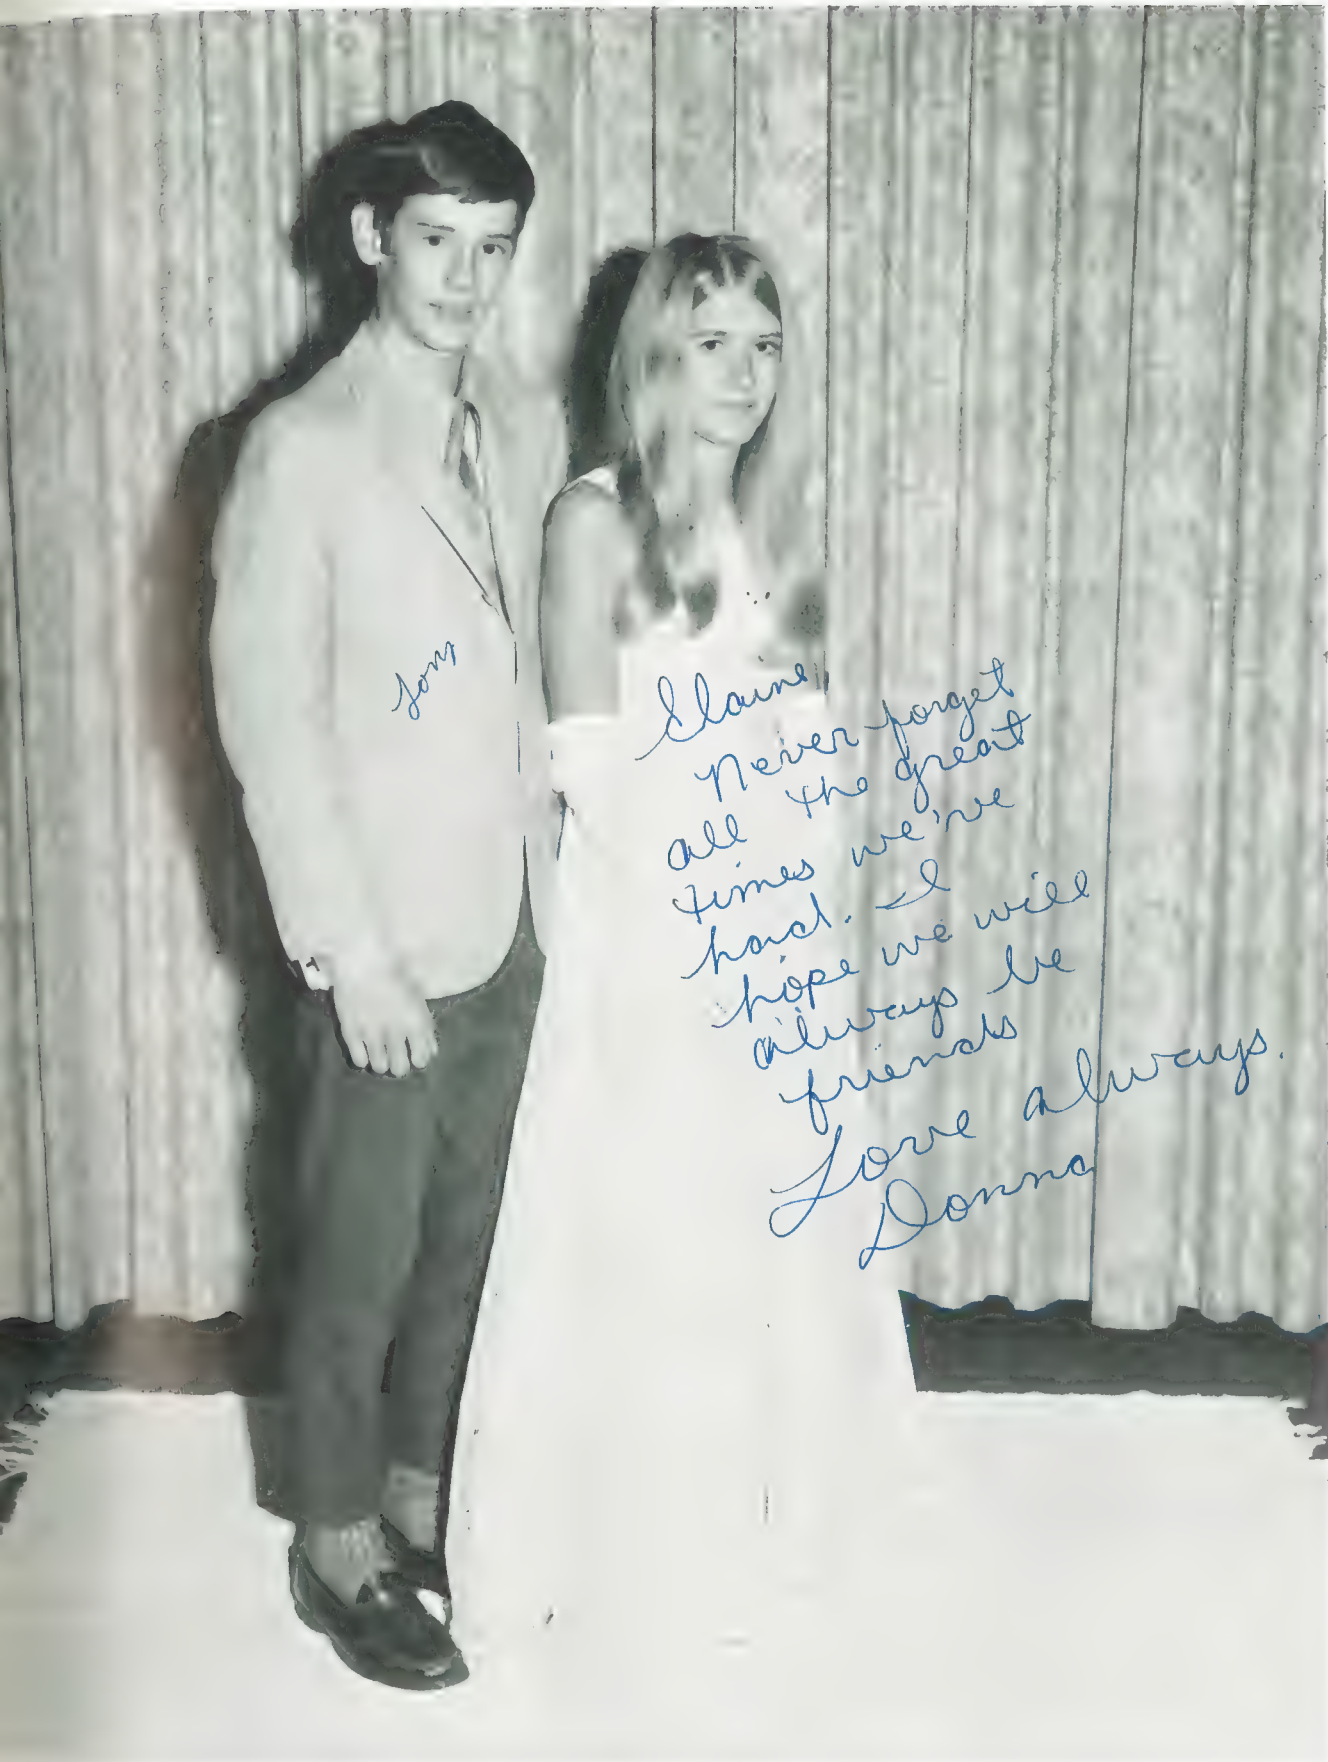 Elaine,
Never forget
all the great
times we've
had. I
hope we will
always be
friends
Love always.
Donna